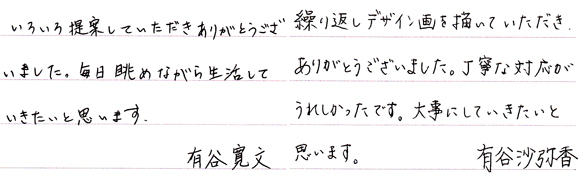 いろいろ提案していただきありがとうござ
いました。毎日眺めながら生活して
いきたいと思います.
有谷寛文
繰り返しデザイン画を描いていただき.
ありがとうございました。丁寧な対応が
うれしかったです。大事にしていきたいと
思います。 有谷沙弥香